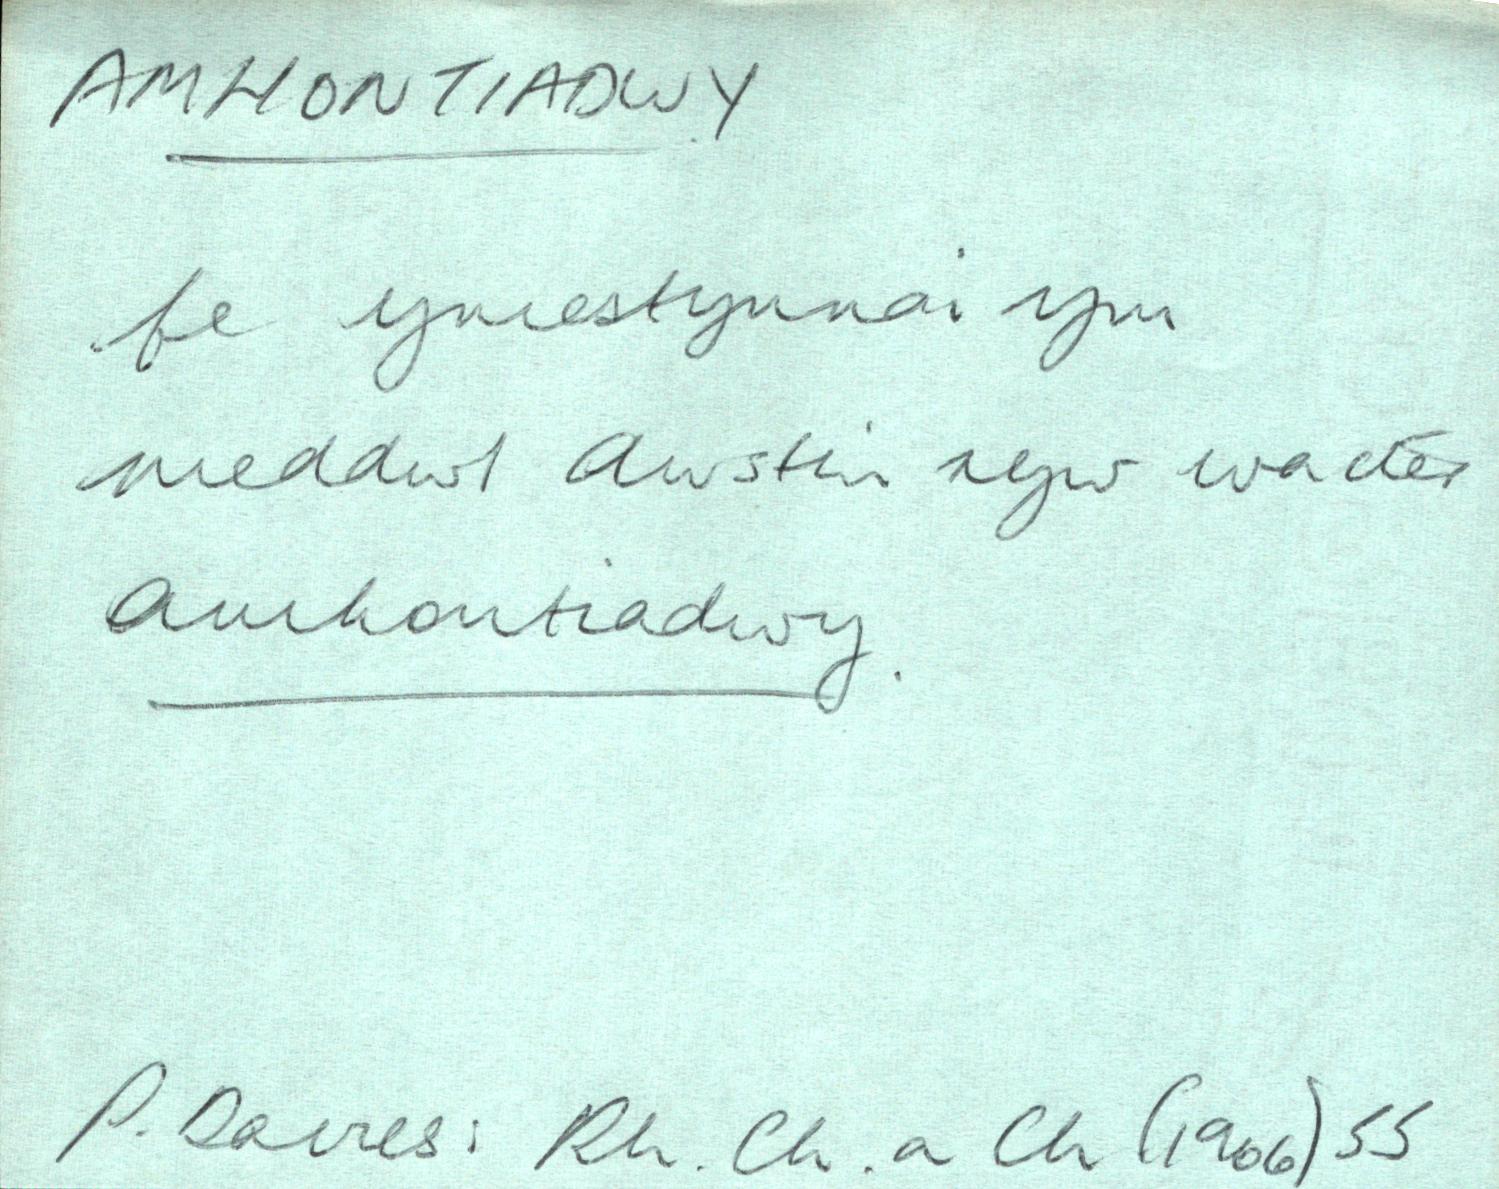 AMHONTIADWY
fe ymestynnai ym
meddwl Awstin ryw wacter
amhontiadwy.
P. Davies: Rh. Ch. a Ch (1906) 55